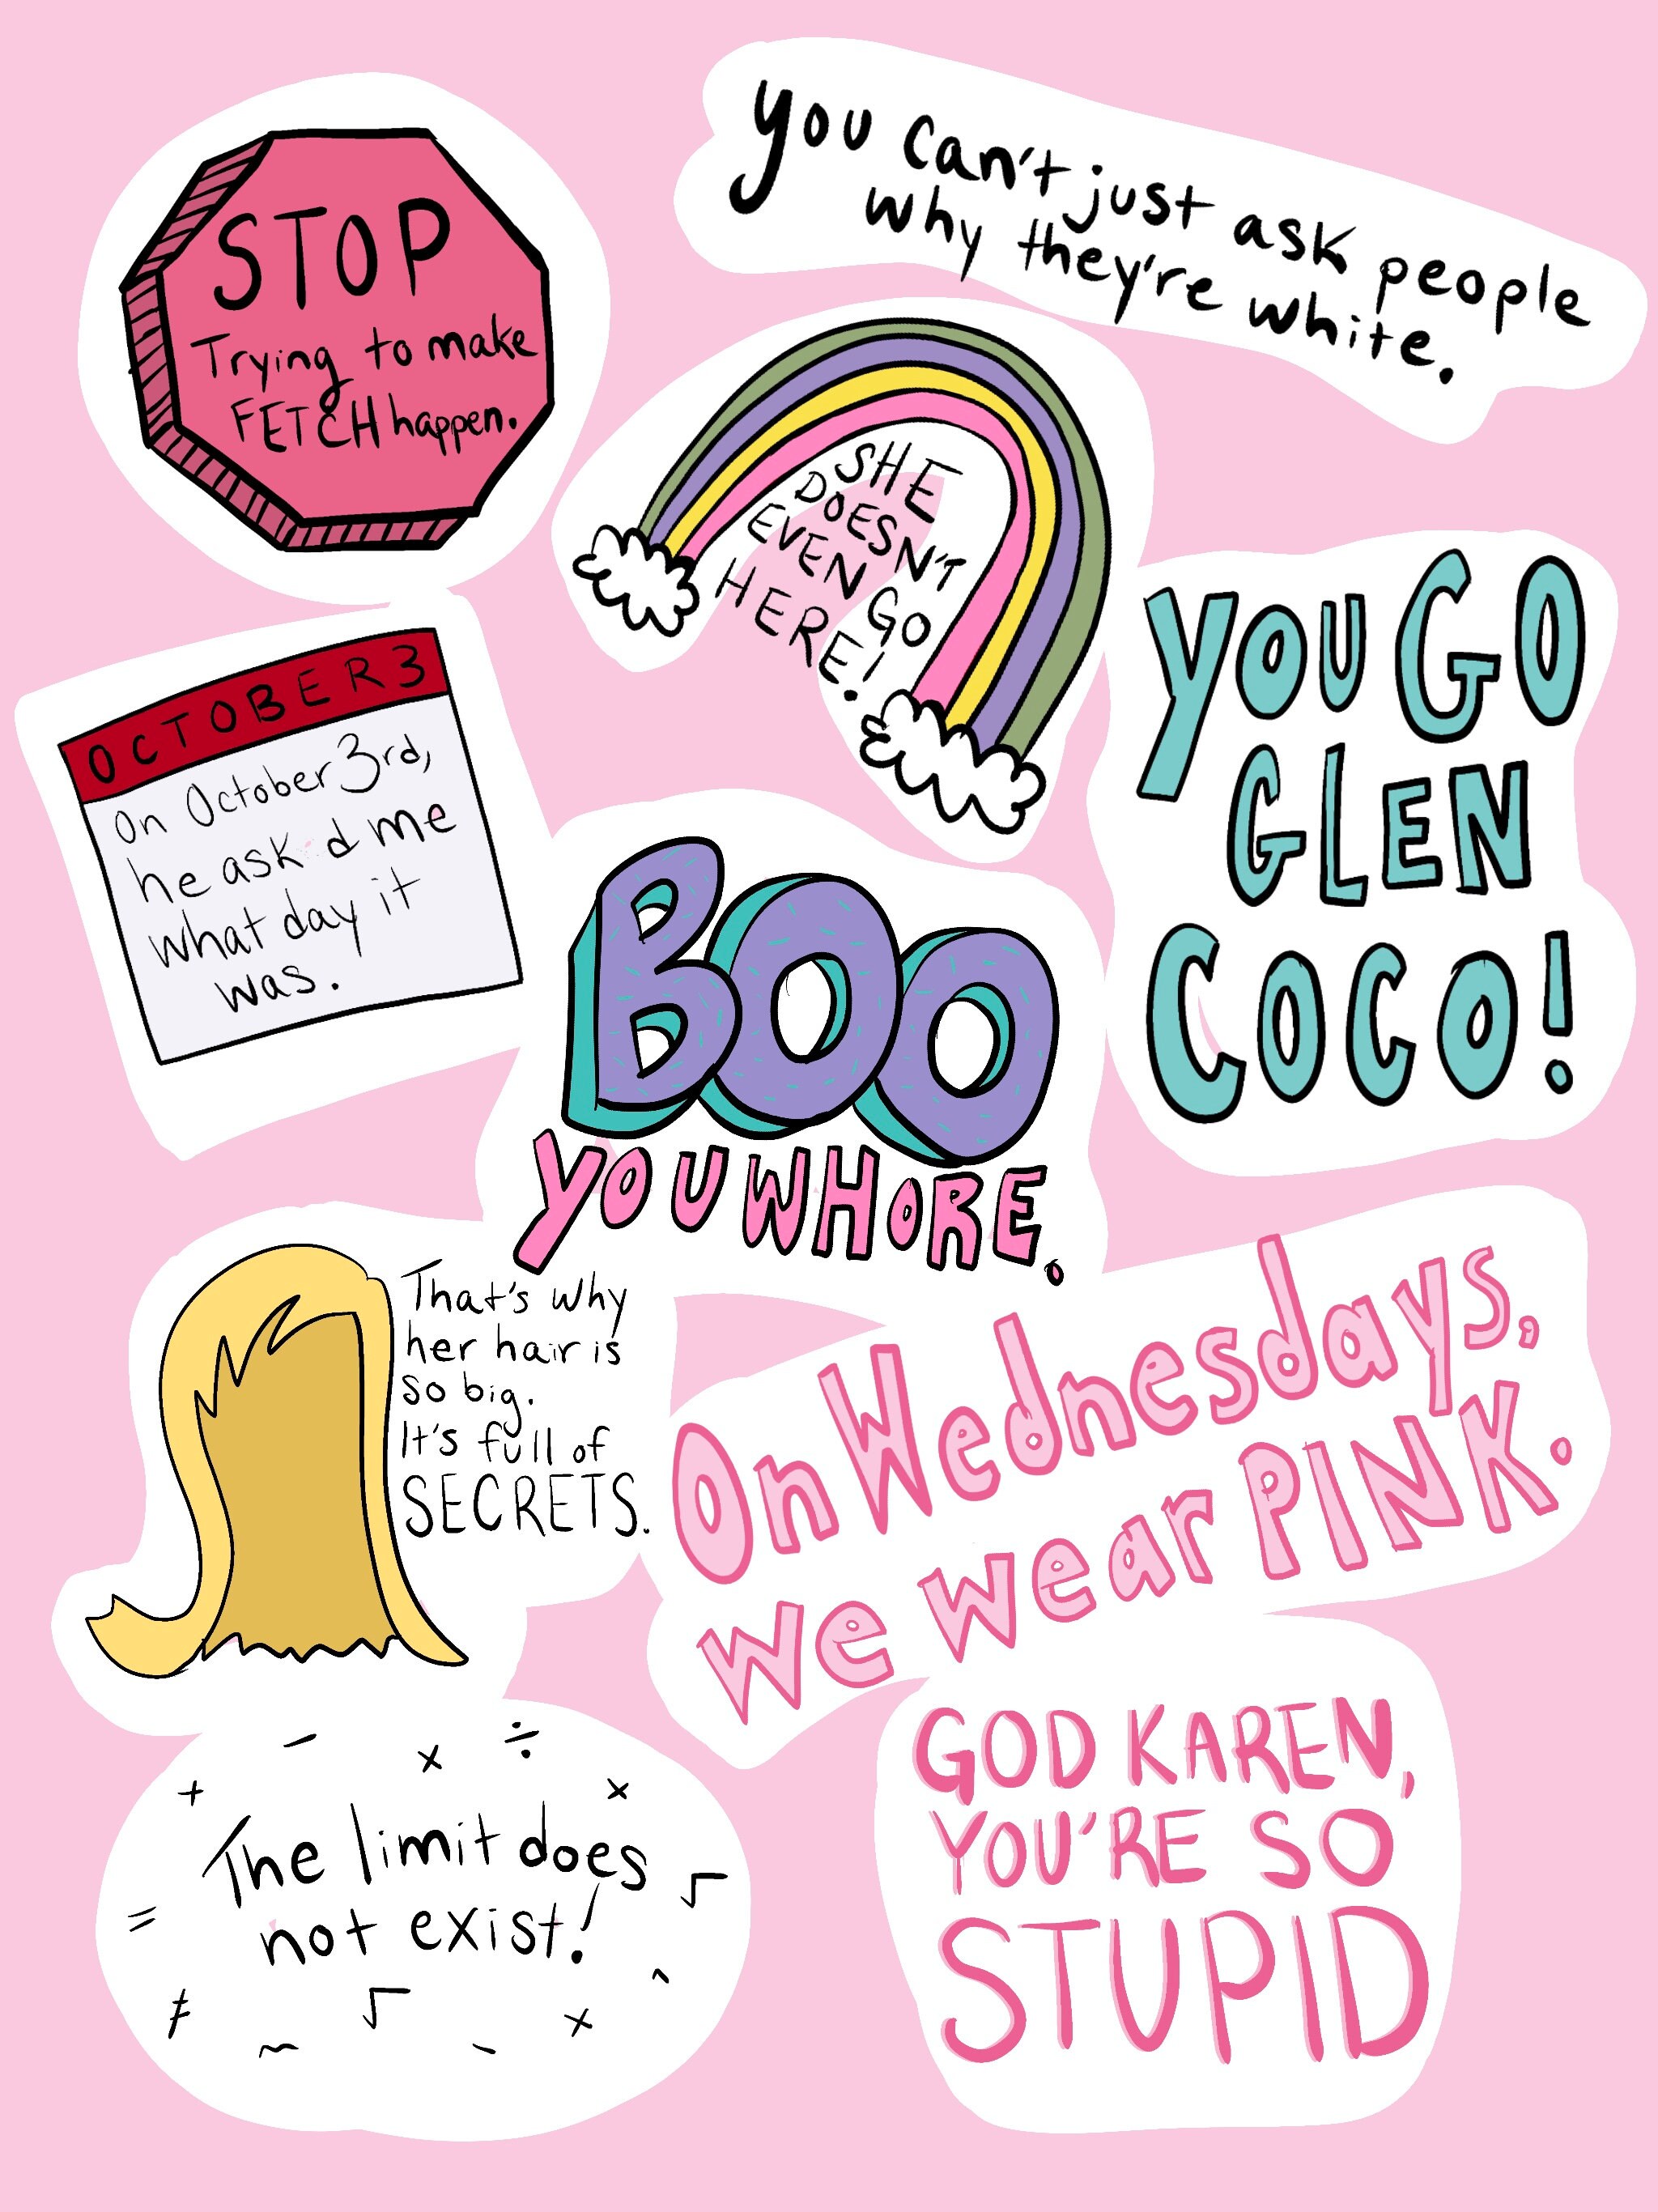 STOP
Trying to make
FETCH happen.
You can't just ask people
why they're white.
SHE
DOESN'T
EVEN GO
HERE!
YOU GO
GLEN
COCO!
OCTOBER 3
On October 3rd,
he ask d me
what day it
was.
BOO
YOU WHORE.
That's why
her hair is
so big.
It's full of
SECRETS.
On Wednesdays,
we wear PINK.
The limit does
not exist!
GOD KAREN,
YOU'RE SO
STUPID